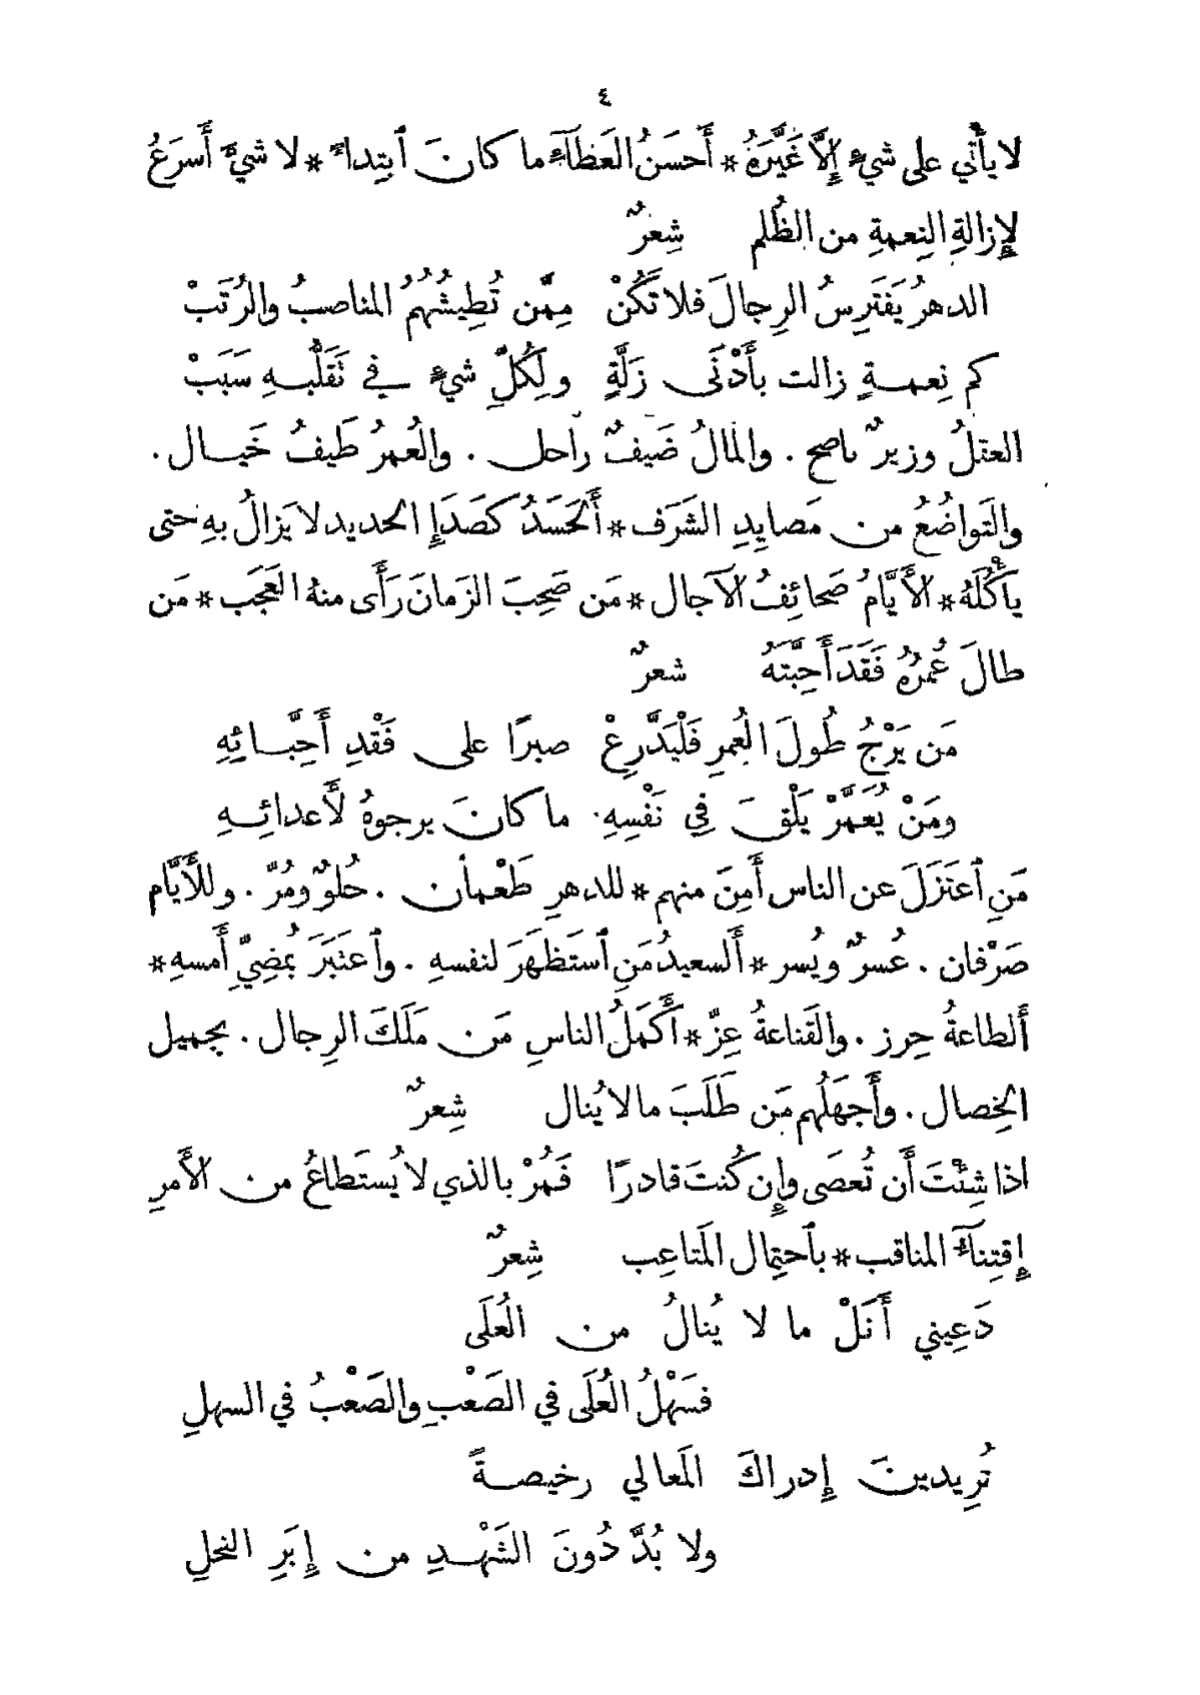 ٤
لا يأتي على شيءٍ إِلَّا غَيَّرَهُ * أَحسَنُ العَطَآءِ ما كانَ ٱبتِداءً * لا شيءَ أَسرَعُ
لإِزالةِ النِعمةِ من الظُلم شِعرٌ
الدهرُ يَفتَرِسُ الرِجالَ فلا تَكُنْ مِمَّن تُطِيشُهُمُ المناصبُ والرُتَبْ
كم نِعمــةٍ زالت بأَدْنَى زَلَّةٍ ولِكُلِّ شيءٍ في تَقَلُّبــهِ سَبَبْ
العقلُ وزيرٌ ناصح . والمالُ ضَيفٌ راحل . والعُمرُ طَيفُ خَيــال .
والتَواضُعُ من مَصايِدِ الشَرَف * أَلحَسَدُ كَصَدَإِ الحديد لا يَزالُ بهِ حتى
يأْكُلَهُ * الأَيَّامُ صَحائِفُ الآجال * مَن صَحِبَ الزَمانَ رَأَى منهُ العَجَب * مَن
طالَ عُمرُهُ فَقَدَ أَحِبَّتَهُ شعرٌ
مَن يَرْجُ طُولَ العُمرِ فَلْيَدَّرِعْ صبرًا على فَقْدِ أَحِبَّــائِهِ
ومَنْ يُعَمَّرْ يَلْقَ فِي نَفْسِهِ ما كانَ يرجوهُ لأَعدائِــهِ
مَنِ ٱعتَزَلَ عن الناس أَمِنَ منهم * للدهرِ طَعْمان . حُلوٌ ومُرّ . وللأَيَّام
صَرْفان . عُسرٌ ويُسر * أَلسعيدُ مَنِ ٱستَظهَرَ لنفسهِ . وٱعتَبَرَ بمُضِيِّ أَمسهِ *
أَلطاعةُ حِرز . والقَناعةُ عِزّ * أَكمَلُ الناسِ مَن مَلَكَ الرِجال . بجميل
الخِصال . وأَجهَلُهم مَن طَلَبَ ما لا يُنال شِعرٌ
اذا شِئْتَ أَن تُعصَى وإِن كُنتَ قادرًا فَمُرْ بالذي لا يُستَطاعُ من الأَمرِ
إِقتِنآءُ المناقب * بٱحتِمال المَتاعِب شِعرٌ
دَعِيني أَنَلْ ما لا يُنالُ من العُلَى
فسَهْلُ العُلَى في الصَعْبِ والصَعْبُ في السهلِ
تُرِيدينَ إِدراكَ المَعالي رخيصــةً
ولا بُدَّ دُونَ الشَهْــدِ من إِبَرِ النحلِ